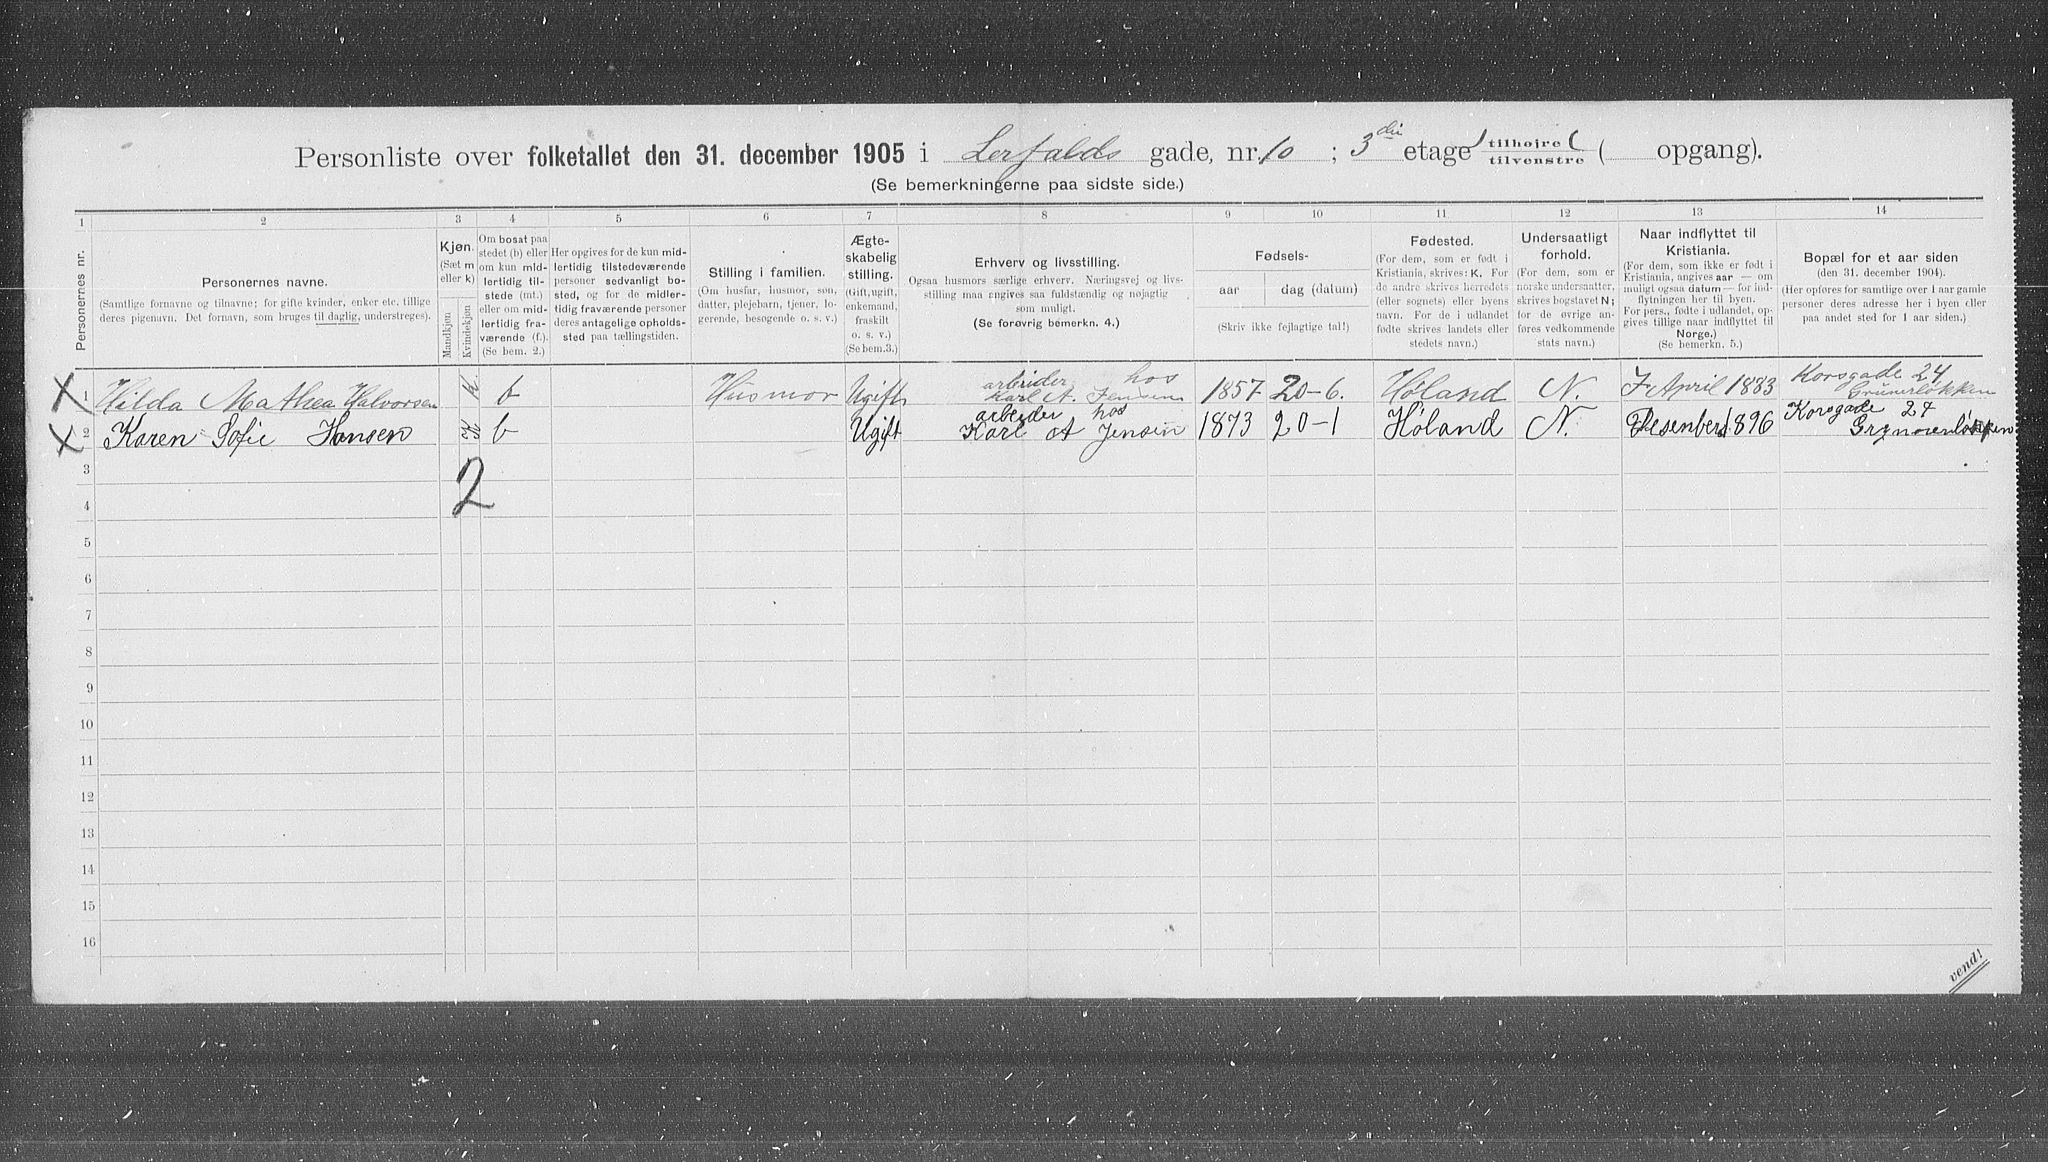 Personliste over folketallet den 31. december 1905 i Lerfalds gade, nr. 10 ; 3die etage tilhøjre / tilvenstre ( opgang).
(Se bemerkningerne paa sidste side.)
1 2 3 4 5 6 7 8 9 10 11 12 13 14
Personernes nr.
Personernes navne.
(Samtlige fornavne og tilnavne; for gifte kvinder, enker etc. tillige
deres pigenavn. Det fornavn, som bruges til daglig, understreges).
Kjøn.
(Sæt m
eller k)
Mandkjøn
Kvindekjøn
Om bosat paa
stedet (b) eller
om kun mid-
lertidig til-
stede (mt.)
eller om mid-
lertidig fra-
værende (f.).
(Se bem. 2.)
Her opgives for de kun mid-
lertidig tilstedeværende
personer sedvanligt bo-
sted, og for de midler-
tidig fraværende personer
deres antagelige opholds-
sted paa tællingstiden.
Stilling i familien.
(Om husfar, husmor, søn,
datter, plejebarn, tjener, lo-
gerende, besøgende o. s. v.)
Ægte-
skabelig
stilling.
(Gift, ugift,
enkemand,
fraskilt
o. s. v.)
(Se bem. 3.)
Erhverv og livsstilling.
Ogsaa husmors særlige erhverv. Næringsvej og livs-
stilling maa angives saa fuldstændig og nøjagtig
som muligt.
(Se forøvrig bemerkn. 4.)
Fødsels-
aar dag (datum)
(Skriv ikke fejlagtige tal!)
Fødested.
(For dem, som er født i
Kristiania, skrives: K. For
de andre skrives herredets
(eller sognets) eller byens
navn. For de i udlandet
fødte skrives landets eller
stedets navn.)
Undersaatligt
forhold.
(For dem, som er
norske undersaatter,
skrives bogstavet N;
for de øvrige an-
føres vedkommende
stats navn.)
Naar indflyttet til
Kristiania.
(For dem, som ikke er født i
Kristiania, angives aar — om
muligt ogsaa datum — for ind-
flytningen her til byen.
For pers., fødte i udlandet, op-
gives tillige naar indflyttet til
Norge.)
(Se bemerkn. 5.)
Bopæl for et aar siden
(den 31. december 1904).
(Her opføres for samtlige over 1 aar gamle
personer deres adresse her i byen eller
paa andet sted for 1 aar siden.)
X 1 Hilda Mathea Halvorsen K. b Husmor Ugift arbeider hos Karl A. Jensen 1857 20-6. Høland N. April 1883 Korsgade 24 Grünerløkken
X 2 Karen Sofie Hansen K b Ugift arbeder hos Karl A Jensen 1873 20-1 Høland N. Desenber 1896 Korsgade 24
2
3
4
5
6
7
8
9
10
11
12
13
14
15
16
vend!